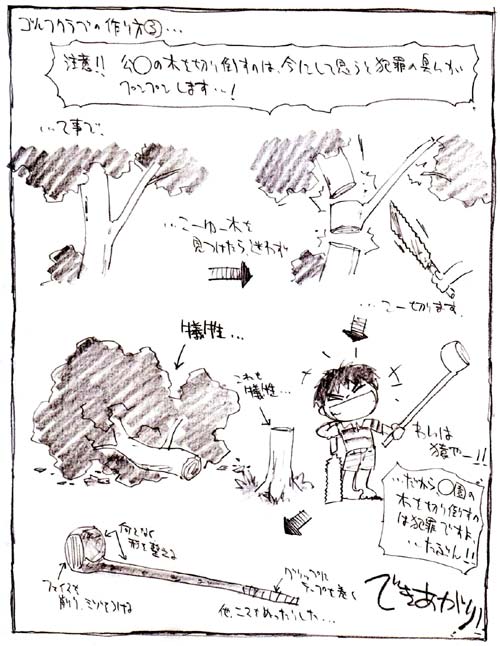 ゴルフクラブの作り方③...
注意!! 公〇の木を切り倒すのは、今にして思うと犯罪の臭いが
プンプンします...!
...て事で、
...こーゆー木を
見つけたら迷わず
...こー切ります。
犠牲...
これも
犠牲...
わいは
猿やー!!
...だから〇園の
木を切り倒すの
は犯罪ですよ、
...たぶん!!
何となく
形を整える
フェイスを
削り、ミゾをつける
グリップに
テープを巻く
他、ニスをぬったりした...
できあがり!!